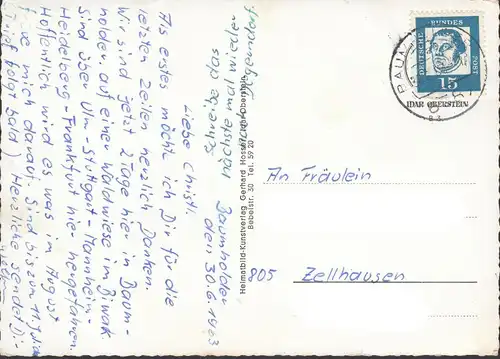 Baumholder
den 30.6.1963
Liebe Christl
Als erstes möcht ich Dir für die
letzten Zeilen herzlich Danken.
Wir sind jetzt 2 Tage hier in Baum-
holder, auf einer Waldwiese im Biwak
Sind über Ulm-Stuttgart-Mannheim-
Heidelberg-Frankfurt hier hergefahren.
Hoffentlich wird es was im August
mich darauf. Sind bis zum 11. Juli
folgt bald) Herzliche sendet Dir
Schreibe das
nächste mal wieder
nach
Heimatbild-Kunstverlag Gerhard Idar-Oberstein
Bebelstr. 30 Tel. 59 20
DEUTSCHE
BUNDES
POST
15
BAUM
IDAR OBERSTEIN
An Fräulein
805 Zellhausen